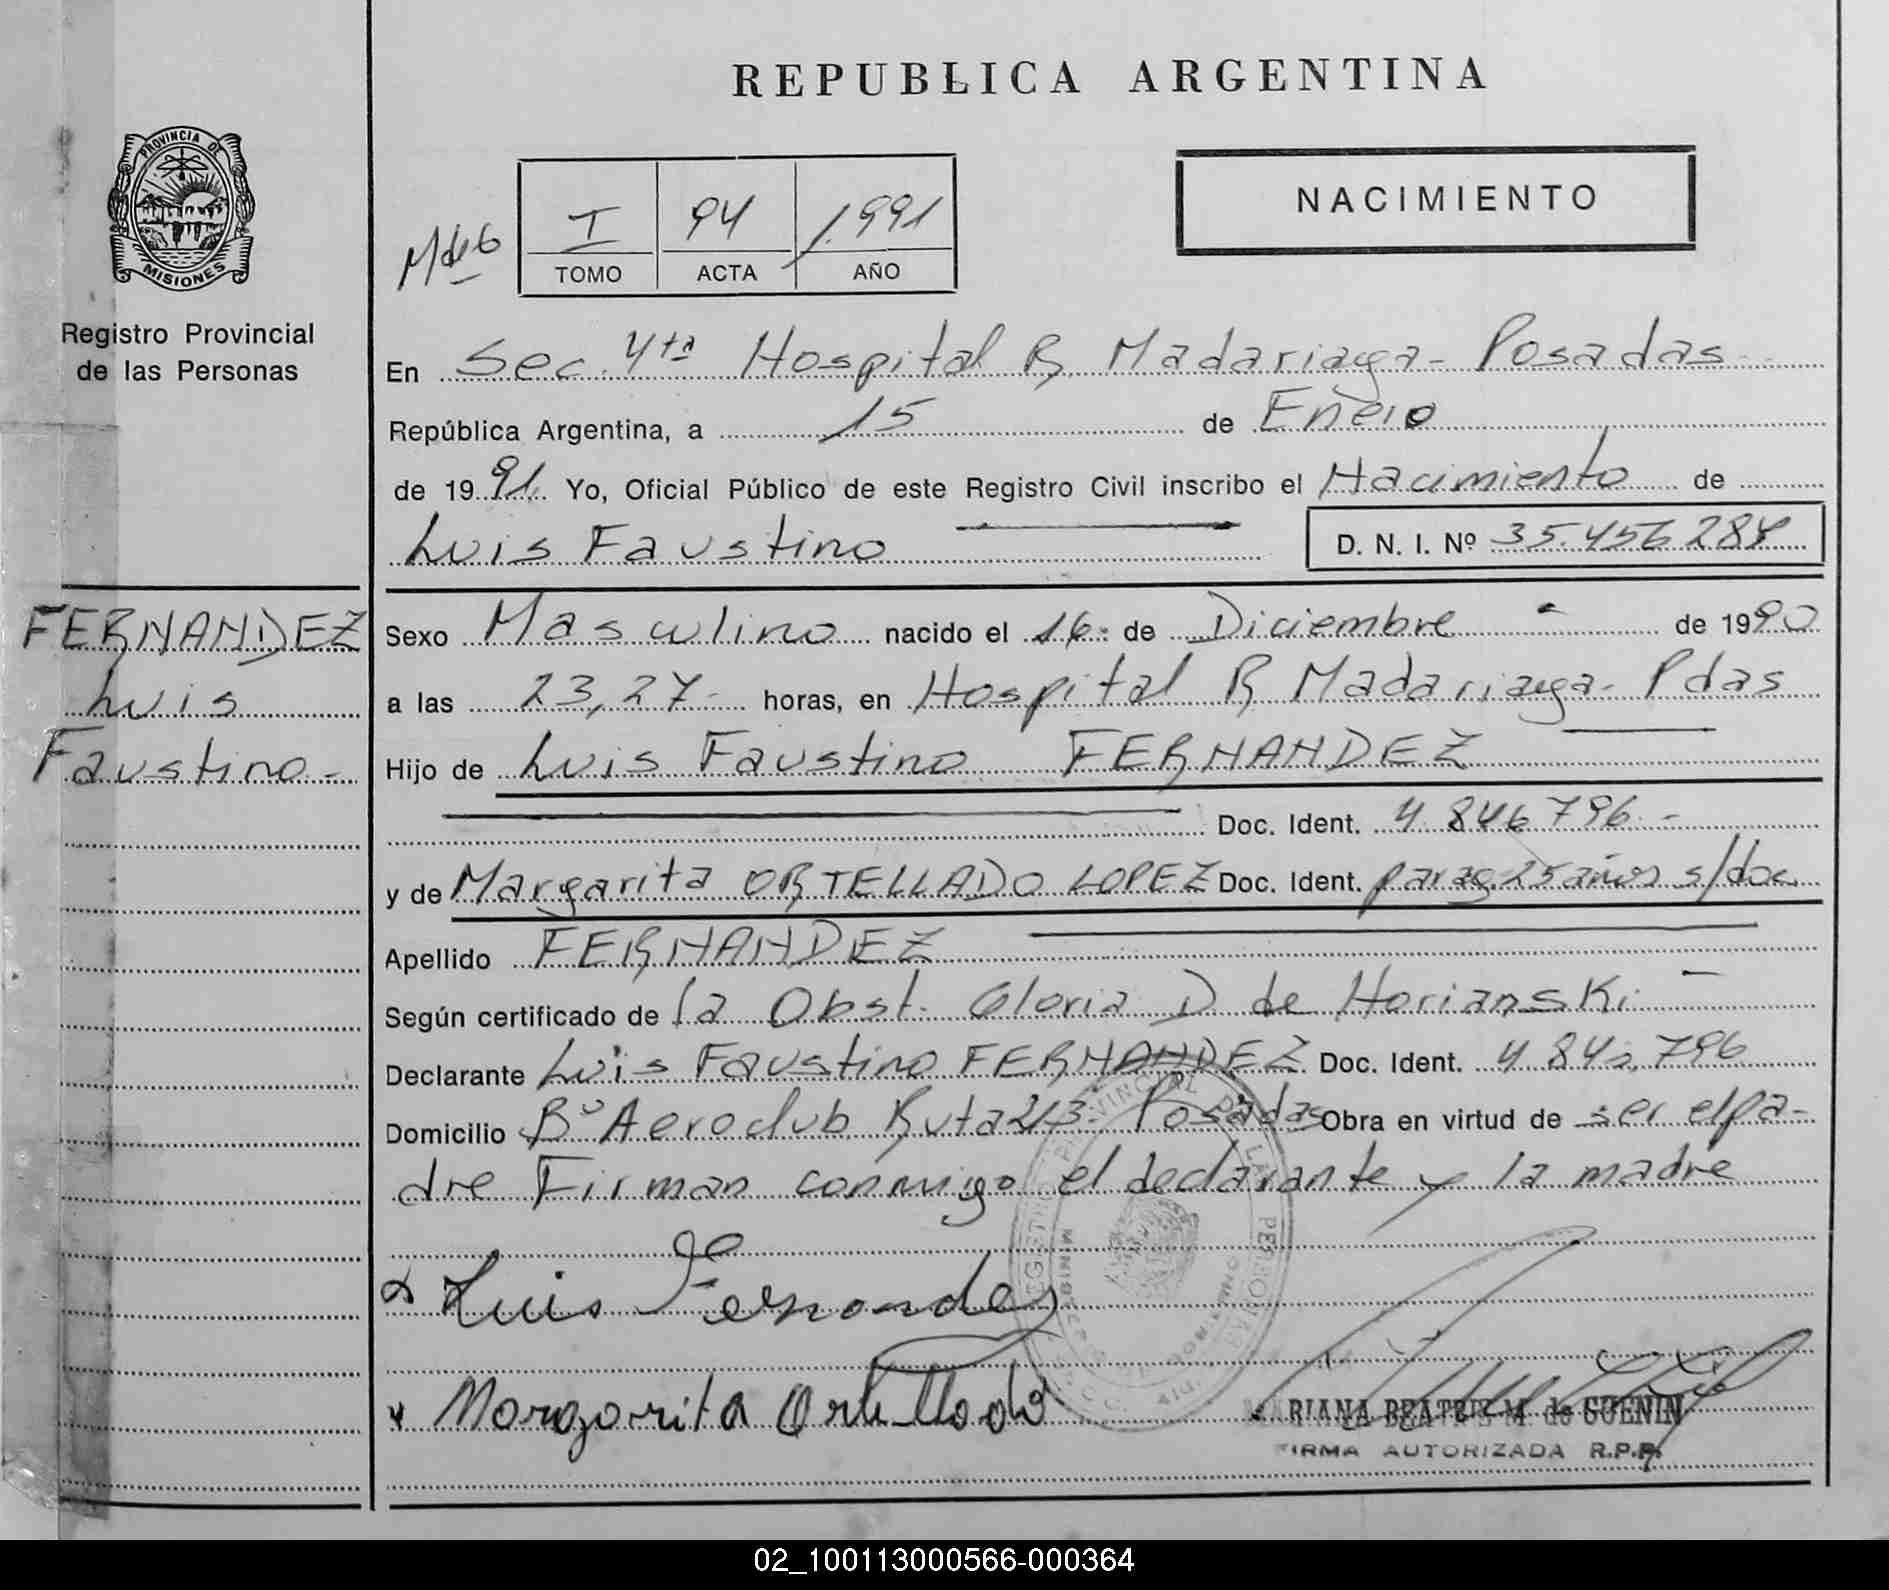 REPUBLICA ARGENTINA
PROVINCIA DE
MISIONES
Registro Provincial
de las Personas
I 94 1.991
TOMO ACTA AÑO
NACIMIENTO
En Sec. 4ta Hospital R Madariaga - Posadas
República Argentina, a 15 de Enero
de 1991. Yo, Oficial Público de este Registro Civil inscribo el Nacimiento de
Luis Faustino D. N. I. Nº 35.456.284
FERNANDEZ
Luis
Faustino -
Sexo Masculino nacido el 16 de Diciembre de 1990
a las 23,27 - horas, en Hospital R Madariaga - Pdas
Hijo de Luis Faustino FERNANDEZ
Doc. Ident. 4.846.796 -
y de Margarita ORTELLADO LOPEZ Doc. Ident. parag. 25 años s/doc
Apellido FERNANDEZ
Según certificado de la Obst. Gloria D. de Horianski -
Declarante Luis Faustino FERNANDEZ Doc. Ident.
Domicilio Bº Aeroclub Ruta 213 - Posadas Obra en virtud de ser el pa-
dre Firman conmigo el declarante y la madre
Luis Fernandez
Margarita Ortellado
MARIANA BEATRIZ M. de GUENIN
FIRMA AUTORIZADA R.P.P.
02_100113000566-000364